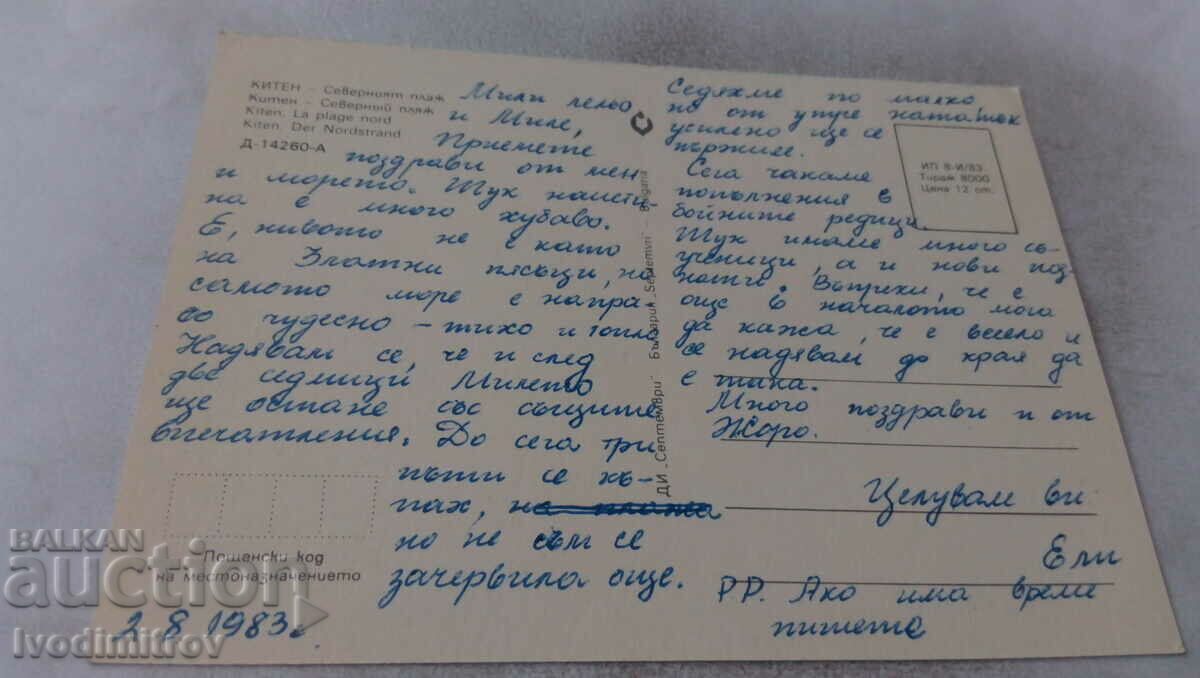 КИТЕН – Северният плаж
Китен – Северный пляж
Kiten. La plage nord
Kiten. Der Nordstrand
Д-14260-А
Мили лельо
и Миле,
Приемете
поздрави от мен
и морето. Тук наисти-
на е много хубаво.
Е, живото не е като
на Златни пясъци, но
самото море е напра-
во чудесно – тихо и топло
Надявам се, че и след
две седмици Милето
ще остане със същите
впечатления. До сега три
пъти се къ-
пах, на плажа
но не съм се
зачервила още.
Пощенски код
на местоназначението
2 8 1983г
ДИ „Септември" България „Septemvri" Bulgaria
Седяхме по малко,
но от утре нататък
усилено ще се
пържим.
Сега чакаме
попълнения в
бойните редици.
Тук имаме много съ-
ученици, а и нови поз-
нати. Въпреки, че е
още в началото мога
да кажа, че е весело и
се надявам до края да
е така.
Много поздрави и от
Жоро.
Целувам ви
Ели
P.P. Ако има време
пишете
ИП 8-И/83
Тираж 8000
Цена 12 ст.
BALKAN
auction
Ivodimitrov